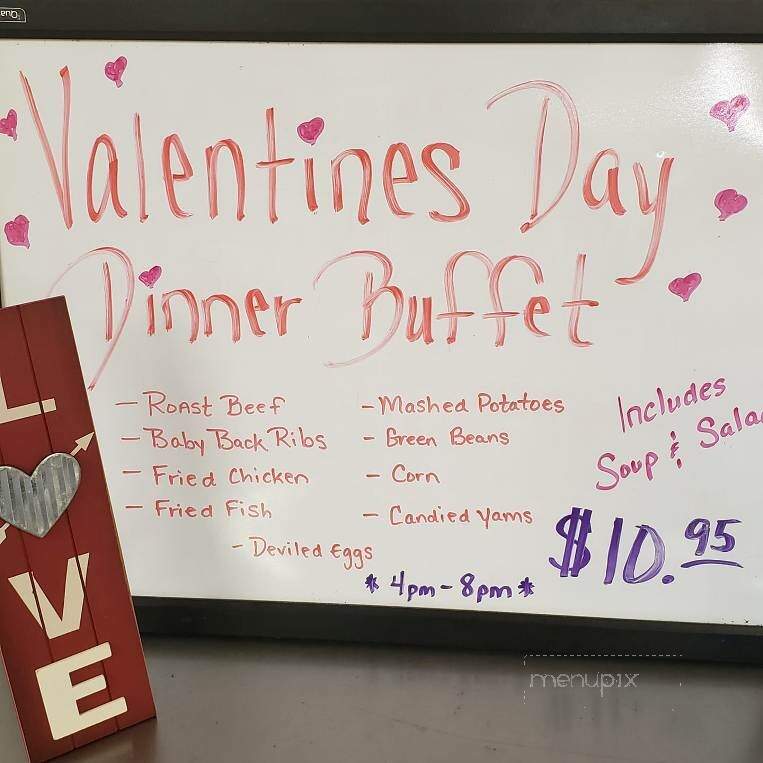 Valentines Day
Dinner Buffet
- Roast Beef
- Baby Back Ribs
- Fried Chicken
- Fried Fish
- Deviled Eggs
- Mashed Potatoes
- Green Beans
- Corn
- Candied Yams
Includes
Soup &
$10.95
* 4pm - 8pm *
L
VE
menupix